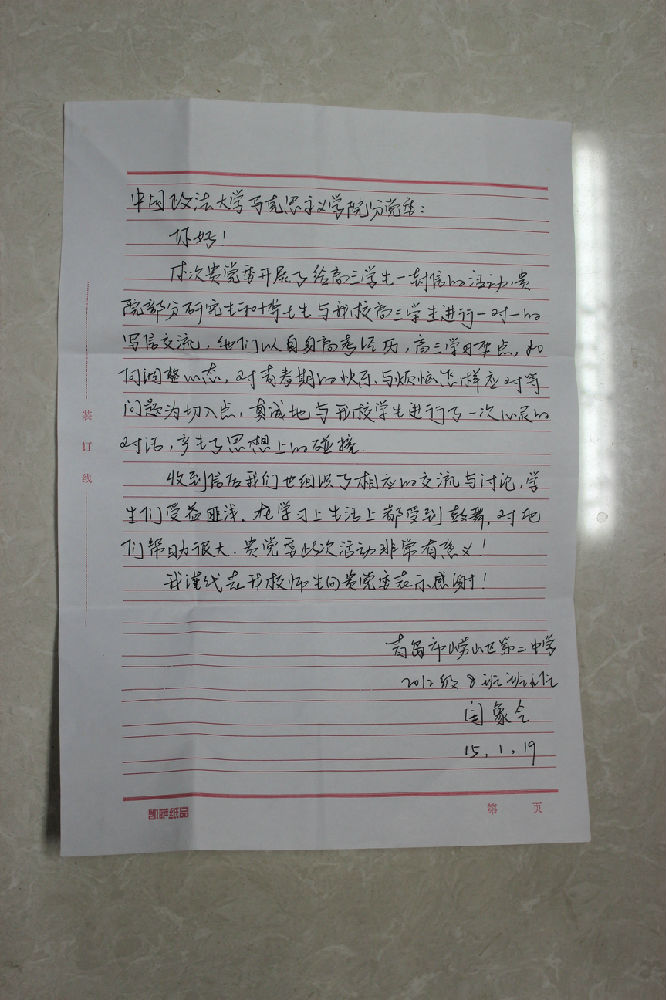 中国政法大学马克思主义学院分党委：
你好！
本次贵党委开展了给高三学生一封信的活动，贵
院部分研究生和博士生与我校高三学生进行一对一的
写信交流，他们以自身高考经历，高三学习难点，如
何调整心态，对青春期的快乐与烦恼怎样应对等
问题为切入点，真诚地与我校学生进行了一次心灵的
对话，产生了思想上的碰撞
收到信后我们也组织了相应的交流与讨论，学
生们受益匪浅，在学习上生活上都受到鼓舞，对他
们帮助很大。贵党委此次活动非常有意义！
我谨代表我校师生向贵党委表示感谢！
青岛市崂山区第二中学
2012级8班班主任
15.1.19
装订线
凯萨纸品
第 页